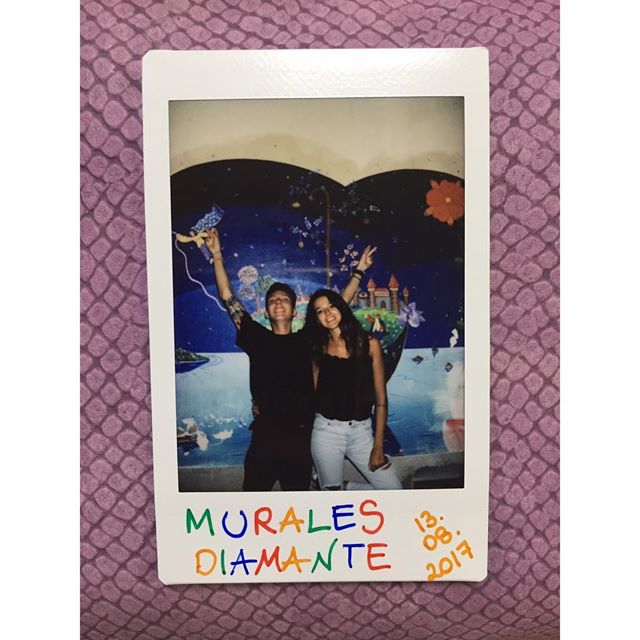 MURALES
DIAMANTE
13.
08.
2017